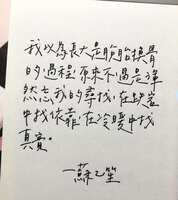 我以為長大是脫胎換骨
的過程,原來不過是渾
然忘我的尋找,在跌宕
中找依靠,在冷暖中找
真實。
—蘇乙笙